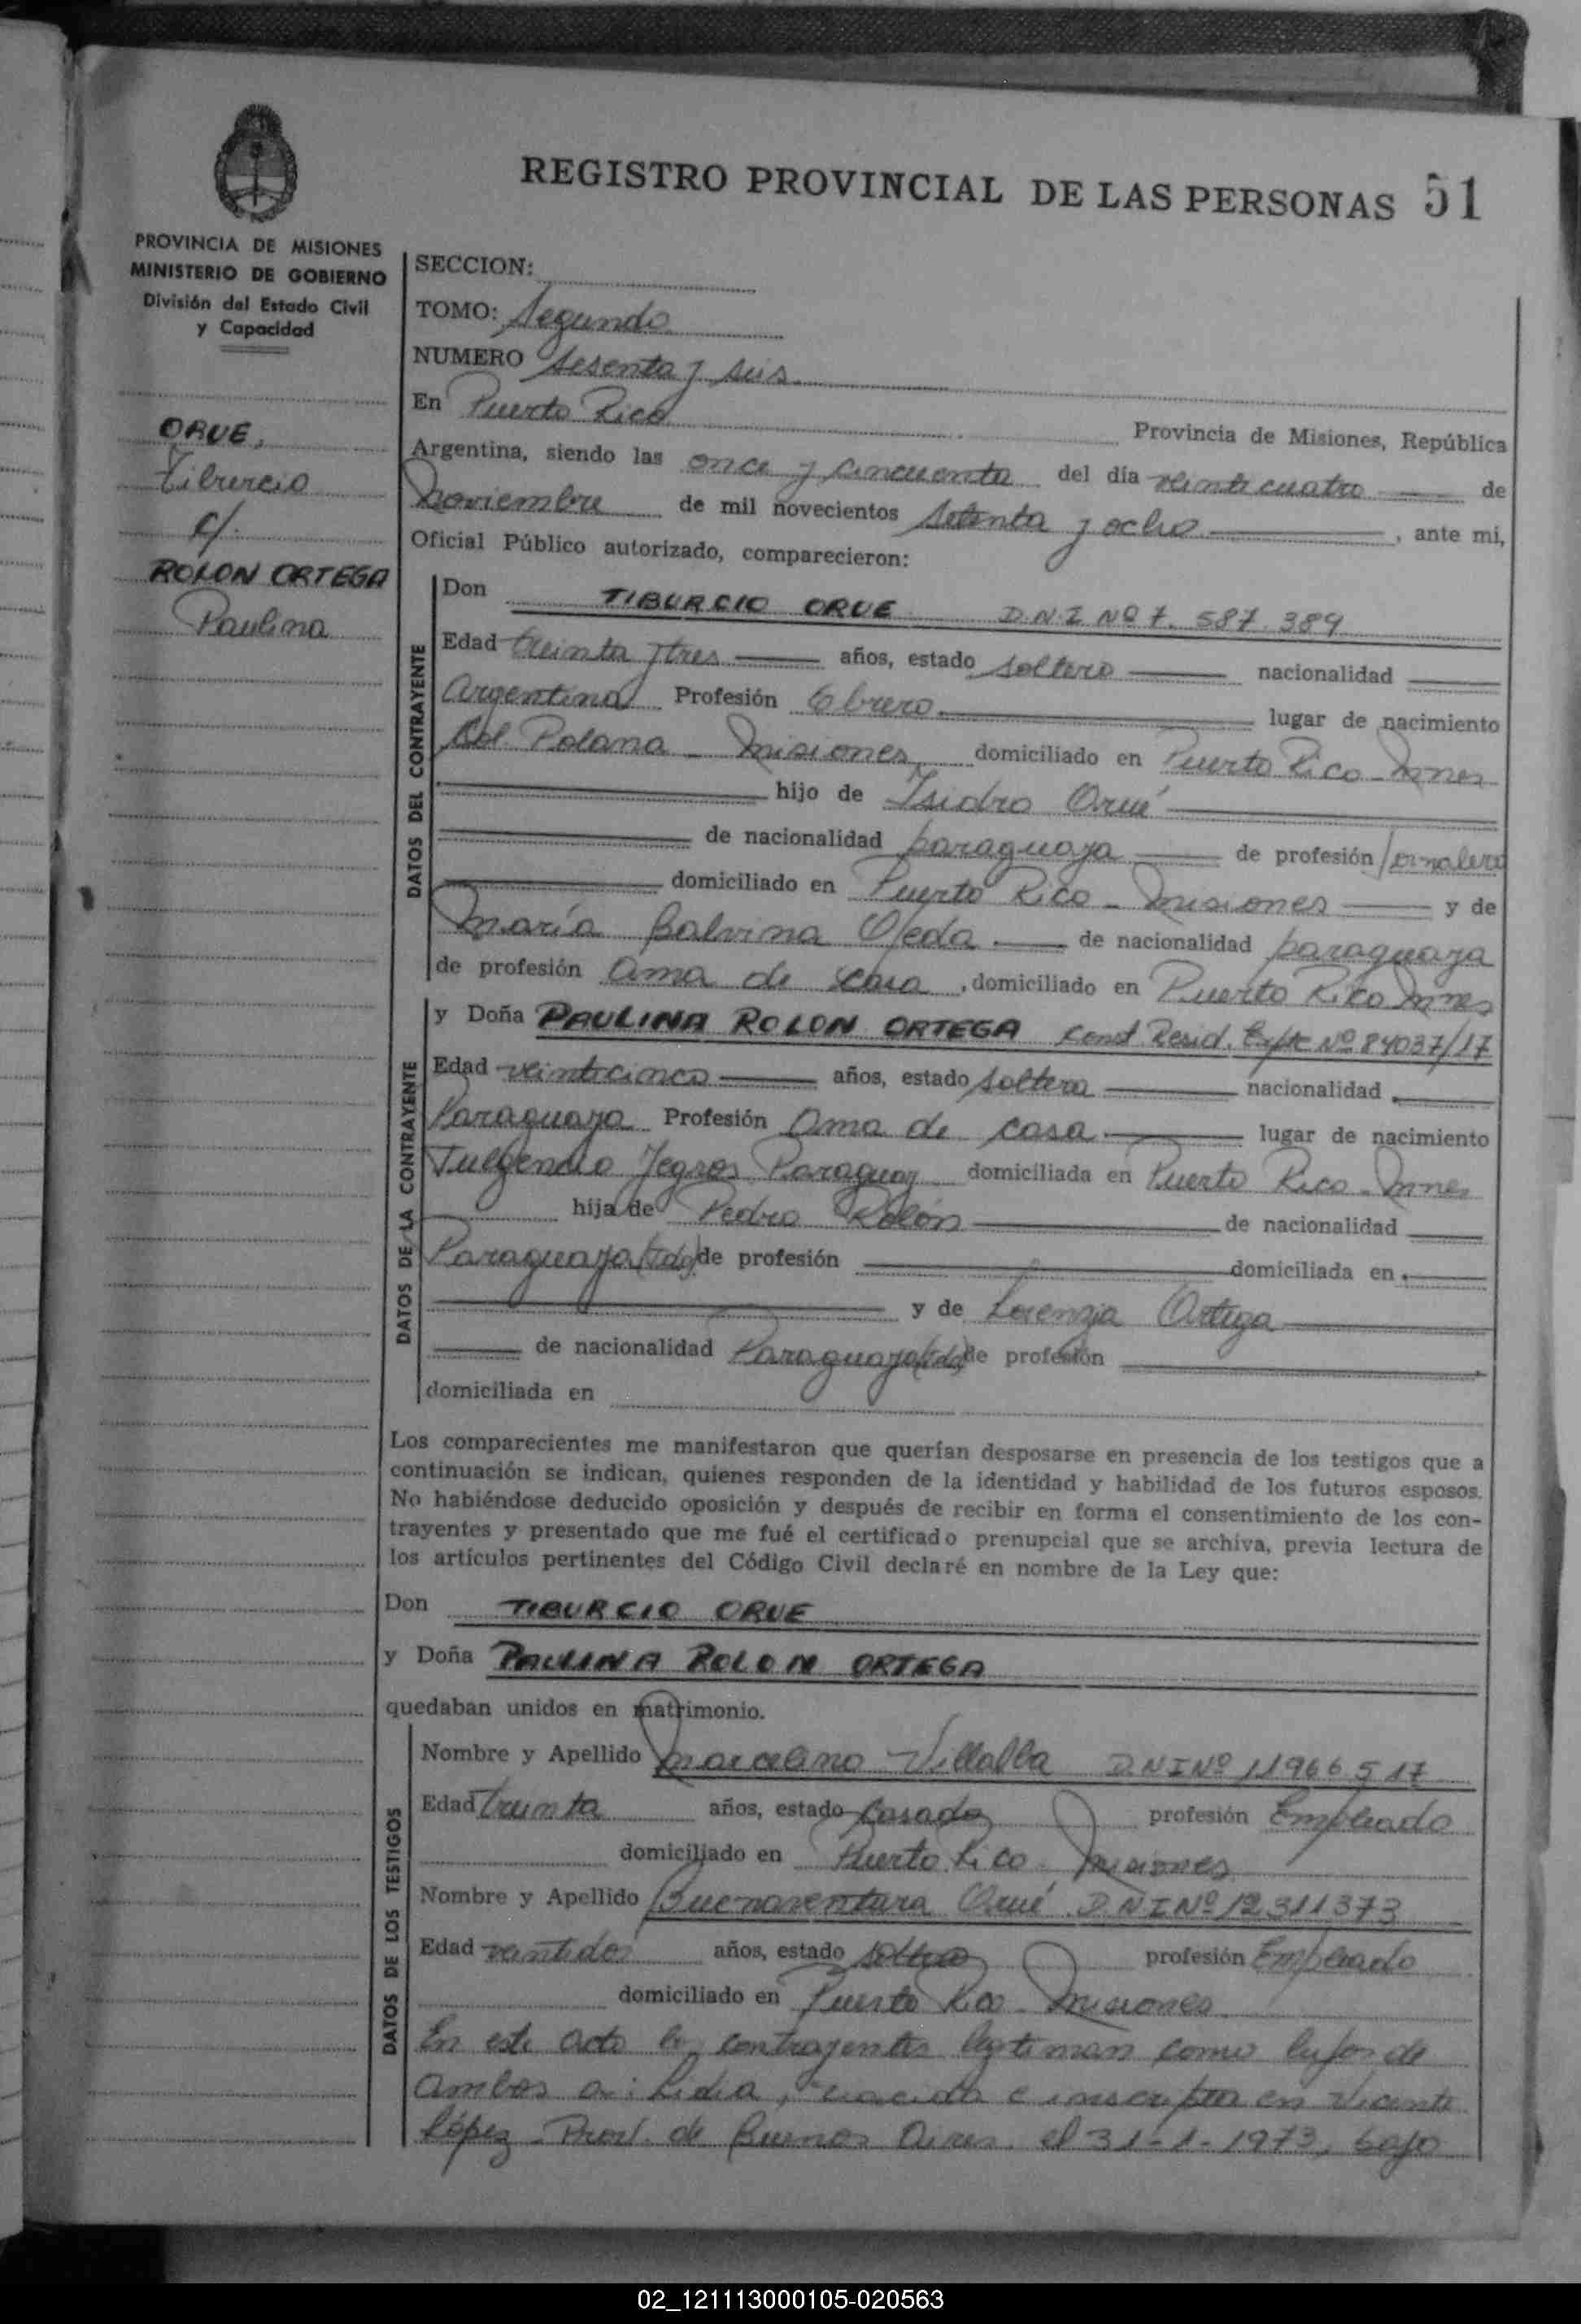 REGISTRO PROVINCIAL DE LAS PERSONAS 51
PROVINCIA DE MISIONES
MINISTERIO DE GOBIERNO
División del Estado Civil
y Capacidad
ORUE,
Tiburcio
c/.
ROLON ORTEGA
Paulina
SECCION:
TOMO: Segundo
NUMERO Sesenta y seis
En Puerto Rico Provincia de Misiones, República
Argentina, siendo las once y cincuenta del día veinticuatro de
Noviembre de mil novecientos setenta y ocho , ante mi,
Oficial Público autorizado, comparecieron:
DATOS DEL CONTRAYENTE
Don TIBURCIO ORUE D.N.I Nº 7.587.389
Edad treinta y tres años, estado soltero nacionalidad
argentina Profesión Obrero lugar de nacimiento
Col. Polana - Misiones domiciliado en Puerto Rico - Mnes
hijo de Isidro Orué
de nacionalidad paraguaya de profesión Jornalero
domiciliado en Puerto Rico - Misiones y de
María Balvina Ojeda de nacionalidad paraguaya
de profesión Ama de casa , domiciliado en Puerto Rico Mnes
DATOS DE LA CONTRAYENTE
y Doña PAULINA ROLON ORTEGA Const Resid. Expte Nº 84037/17
Edad veinticinco años, estado soltera nacionalidad
Paraguaya Profesión Ama de casa lugar de nacimiento
Fulgencio Yegros Paraguay domiciliada en Puerto Rico - Mnes
hija de Pedro Rolón de nacionalidad
Paraguaya (fdo) de profesión domiciliada en
y de Lorenza Ortega
de nacionalidad Paraguaya (fda) de profesión
domiciliada en
Los comparecientes me manifestaron que querían desposarse en presencia de los testigos que a
continuación se indican, quienes responden de la identidad y habilidad de los futuros esposos.
No habiéndose deducido oposición y después de recibir en forma el consentimiento de los con-
trayentes y presentado que me fué el certificado prenupcial que se archiva, previa lectura de
los artículos pertinentes del Código Civil declaré en nombre de la Ley que:
Don TIBURCIO ORUE
y Doña PAULINA ROLON ORTEGA
quedaban unidos en matrimonio.
DATOS DE LOS TESTIGOS
Nombre y Apellido Marcelino Villalba D.N.I Nº 11966517
Edad treinta años, estado casado profesión Empleado
domiciliado en Puerto Rico - Misiones
Nombre y Apellido Buenaventura Orué D.N.I Nº 12311373
Edad veintidos años, estado soltero profesión Empleado
domiciliado en Puerto Rico - Misiones
En este acto los contrayentes legitiman como hijos de
ambos a: Lidia, nacida e inscripta en Vicente
López - Prov. de Buenos Aires el 31-1-1973, bajo
02_121113000105-020563